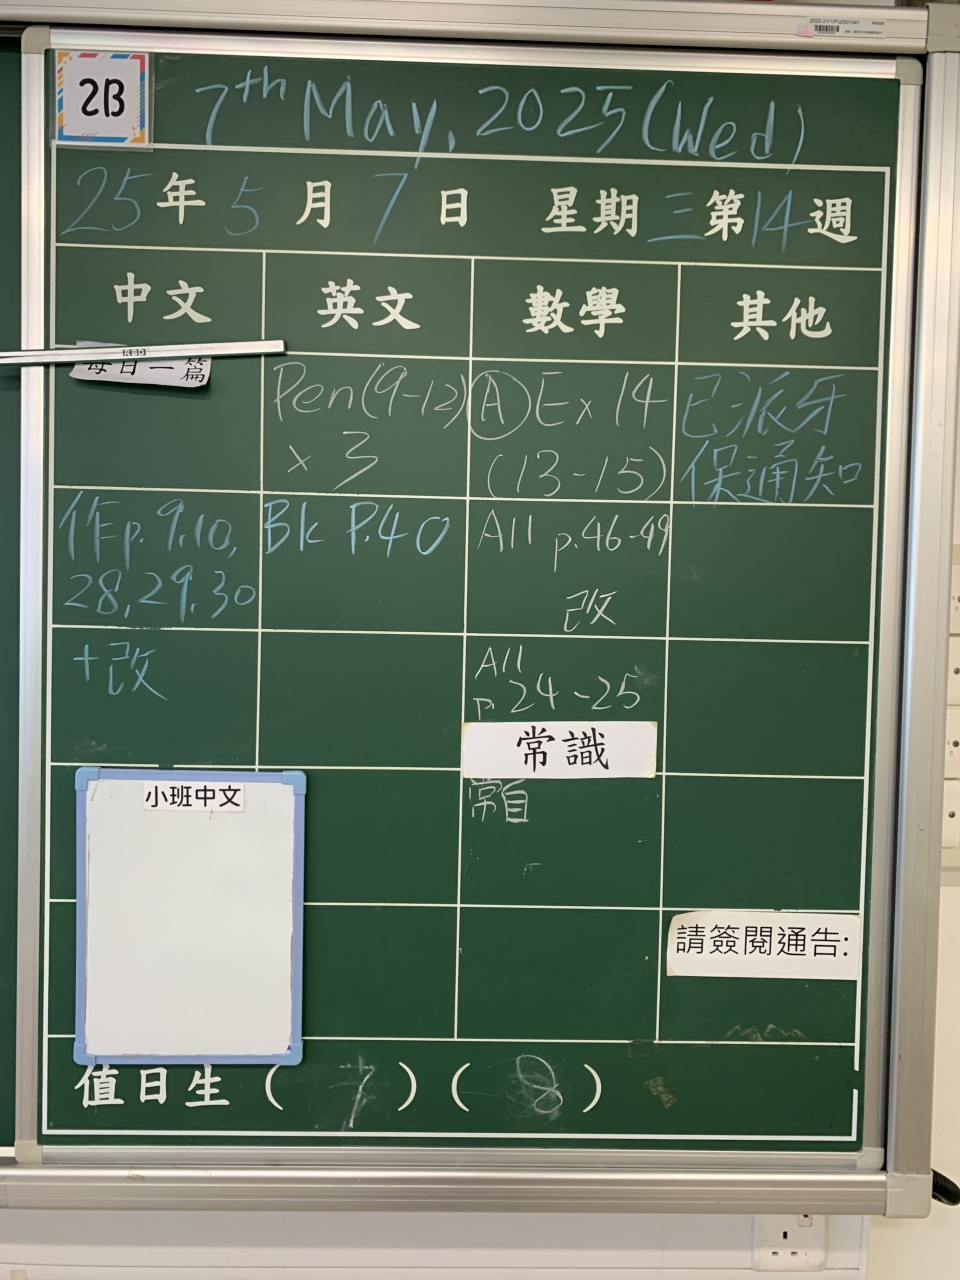 2B
7th May, 2025 (Wed)
25年5月7日 星期三第14週
中文 英文 數學 其他
每日一篇
Pen(9-12)
x 3
Ⓐ Ex 14
(13-15)
已派牙
保通知
作p. 9.10,
28,29.30
+改
Bk P.40
All p.46-49
改
All
p. 24-25
常識
常自
小班中文
請簽閱通告:
值日生 ( 7 ) ( 8 )